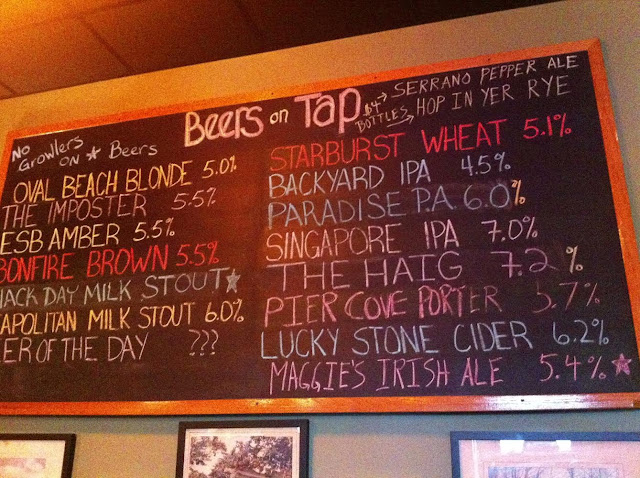 Beers on Tap
$4 → SERRANO PEPPER ALE
BOTTLES → HOP IN YER RYE
NO
Growlers
ON ★ Beers
OVAL BEACH BLONDE 5.0%
THE IMPOSTER 5.5%
ESB AMBER 5.5%
BONFIRE BROWN 5.5%
DAY MILK STOUT ★
APOLITAN MILK STOUT 6.0%
EER OF THE DAY ???
STARBURST WHEAT 5.1%
BACKYARD IPA 4.5%
PARADISE P.A. 6.0%
SINGAPORE IPA 7.0%
THE HAIG 7.2%
PIER COVE PORTER 5.7%
LUCKY STONE CIDER 6.2%
MAGGIE'S IRISH ALE 5.4% ★